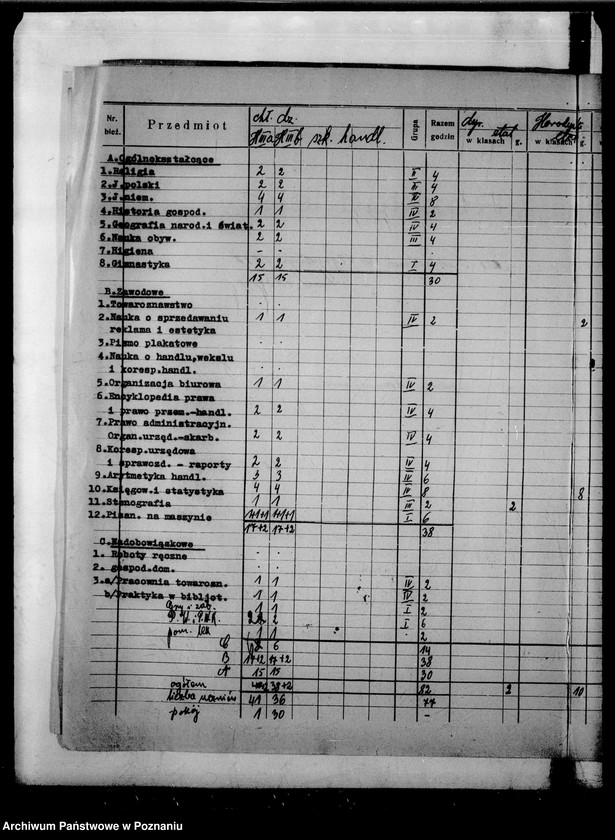 Nr. bież. Przedmiot chł. dz. Grupa Razem godzin Dyr. etat
H III a H III b szk. handl. w klasach g. w klasach g.
A.Ogólnokształcące
1.Religia 2 2 II 4
2.J.polski 2 2 4
3.J.niem. 4 4 8
4.Historia gospod. 1 1 IV 2
5.Geografia narod.i świat. 2 2 IV 4
6.Nauka obyw. 2 2 III 4
7.Higiena - -
8.Gimnastyka 2 2 I 4
15 15 30
B.Zawodowe
1.Towaroznawstwo . .
2.Nauka o sprzedawaniu 1 1 IV 2 2
reklama i estetyka
3.Pismo plakatowe . .
4.Nauka o handlu,wekslu
i koresp.handl. . .
5.Organizacja biurowa 1 1 IV 2
6.Encyklopedia prawa
i prawo przem.-handl. 2 2 IV 4
7.Prawo administracyjn.
Organ.urząd.-skarb. 2 2 IV 4
8.Koresp.urzędowa
i sprawozd. - raporty 2 2 IV 4
9.Arytmetyka handl. 3 3 IV 6
10.Księgow.i statystyka 4 4 IV 8 8
11.Stenografia 1 1 III 2 2
12.Pisan. na maszynie 1+1+1 1+1+1 I 6
17+2 17+2 38
C.Nadobowiązkowe
1. Roboty ręczne . .
2. gospod.dom. . .
3.a/Pracownia towarozn. 1 1 IV 2
b/Praktyka w bibljot. 1 1 IV 2
Gry i zab. 1 1 I 2
2 I 6
pom. lek 1 1 . 2
C 6 14
B 17+2 17+2 38
A 15 15 30
ogółem 38+2 82 2 10
liczba uczniów 41 36 77
pokój 1 30 -
Archiwum Państwowe w Poznaniu